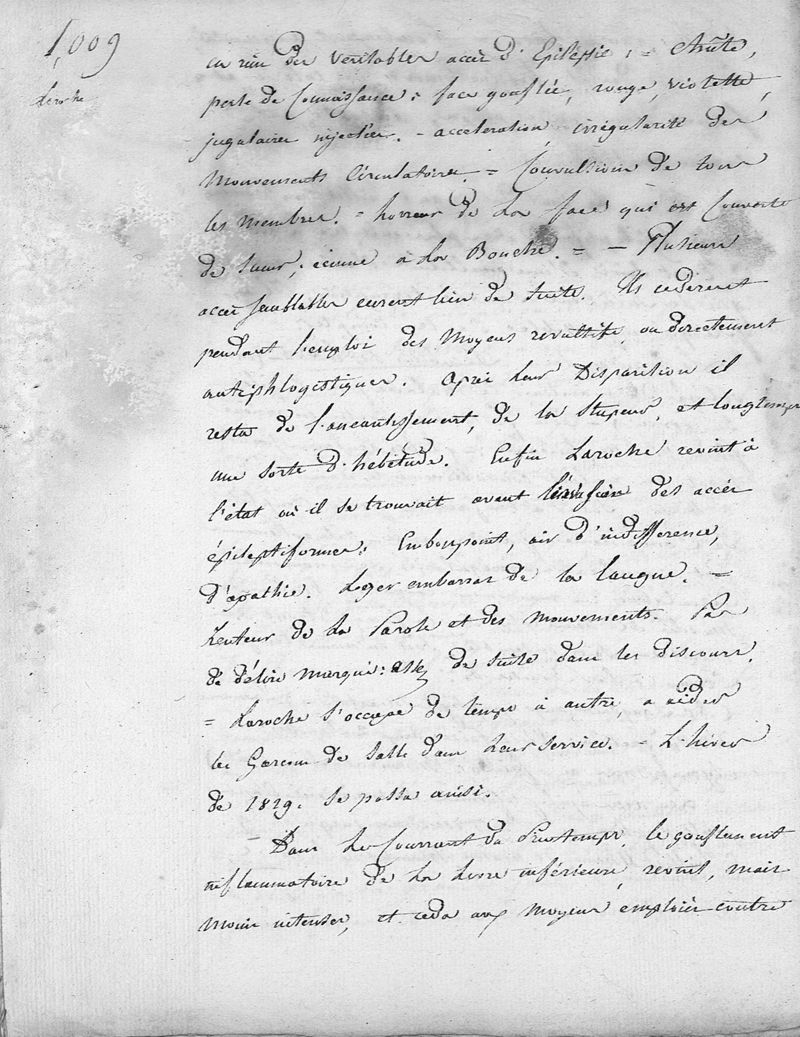 1,009
Laroche
des véritables accès d'Epilepsie : = chûte,
perte de Connaissance ; face gonflée, rouge, violette,
jugulaires injectées. = acceleration, irrégularité des
mouvements Circulatoires. = Convulsions de tous
les membres. = horreur de La face qui est Couverte
de sueur ; écume à La Bouche. = — Plusieurs
accès semblables eurent lieu de suite. Ils cedèrent
pendant l'emploi des moyens revulsifs, ou directement
antiphlogistiques. après Leur Disparition il
resta de l'aneantissement, de la stupeur, et longtemps
une sorte d'hébétude. Enfin Laroche revint à
l'état où il se trouvait avant l'invasion des accès
épileptiformes : Embonpoint, air d'indifference,
d'apathie. Leger embarras de la langue. =
Lenteur de La Parole et des mouvements. Pas
de délire marqué : assez de suite dans les discours.
= Laroche s'occupe de temps à autre, a aider
les Garcons de salle dans Leur service. = L'hiver
de 1829. se passa ainsi.
— Dans Le Courrant du Printemps, le gonflement
inflammatoire de La Levre inférieure, revint, mais
moins intense, et ceda aux moyens emploiés contre